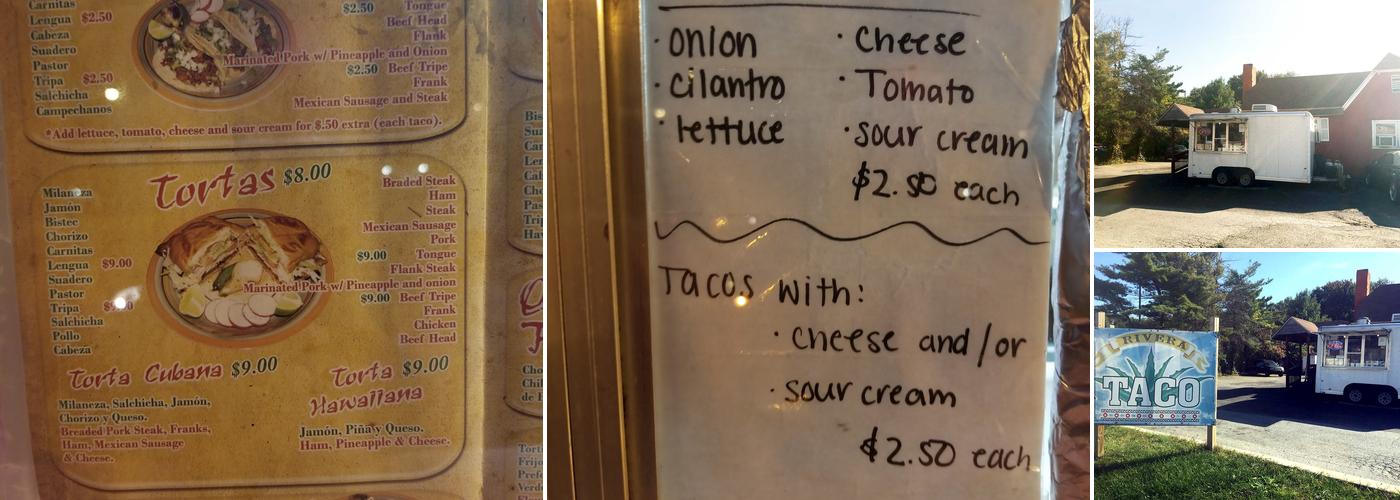 Carnitas
Lengua $2.50
Cabeza
Suadero
Pastor
Tripa $2.50
Salchicha
Campechanos
$2.50 Tongue
Beef Head
Flank
Marinated Pork w/ Pineapple and Onion
$2.50 Beef Tripe
Frank
Mexican Sausage and Steak
*Add lettuce, tomato, cheese and sour cream for $.50 extra (each taco).
Tortas $8.00
Milaneza
Jamón
Bistec
Chorizo
Carnitas
Lengua $9.00
Suadero
Pastor
Tripa
Salchicha
Pollo
Cabeza
Braded Steak
Ham
Steak
Mexican Sausage
Pork
$9.00 Tongue
Flank Steak
Marinated Pork w/ Pineapple and onion
$9.00 Beef Tripe
Frank
Chicken
Beef Head
Torta Cubana $9.00
Milaneza, Salchicha, Jamón,
Chorizo y Queso.
Breaded Pork Steak, Franks,
Ham, Mexican Sausage
& Cheese.
Torta $9.00
Hawaiiana
Jamón, Piña y Queso.
Ham, Pineapple & Cheese.
· onion · Cheese
· cilantro · Tomato
· lettuce · sour cream
$2.50 each
Tacos with:
· cheese and/or
· sour cream
$2.50 each
RIVERA'S
TACO